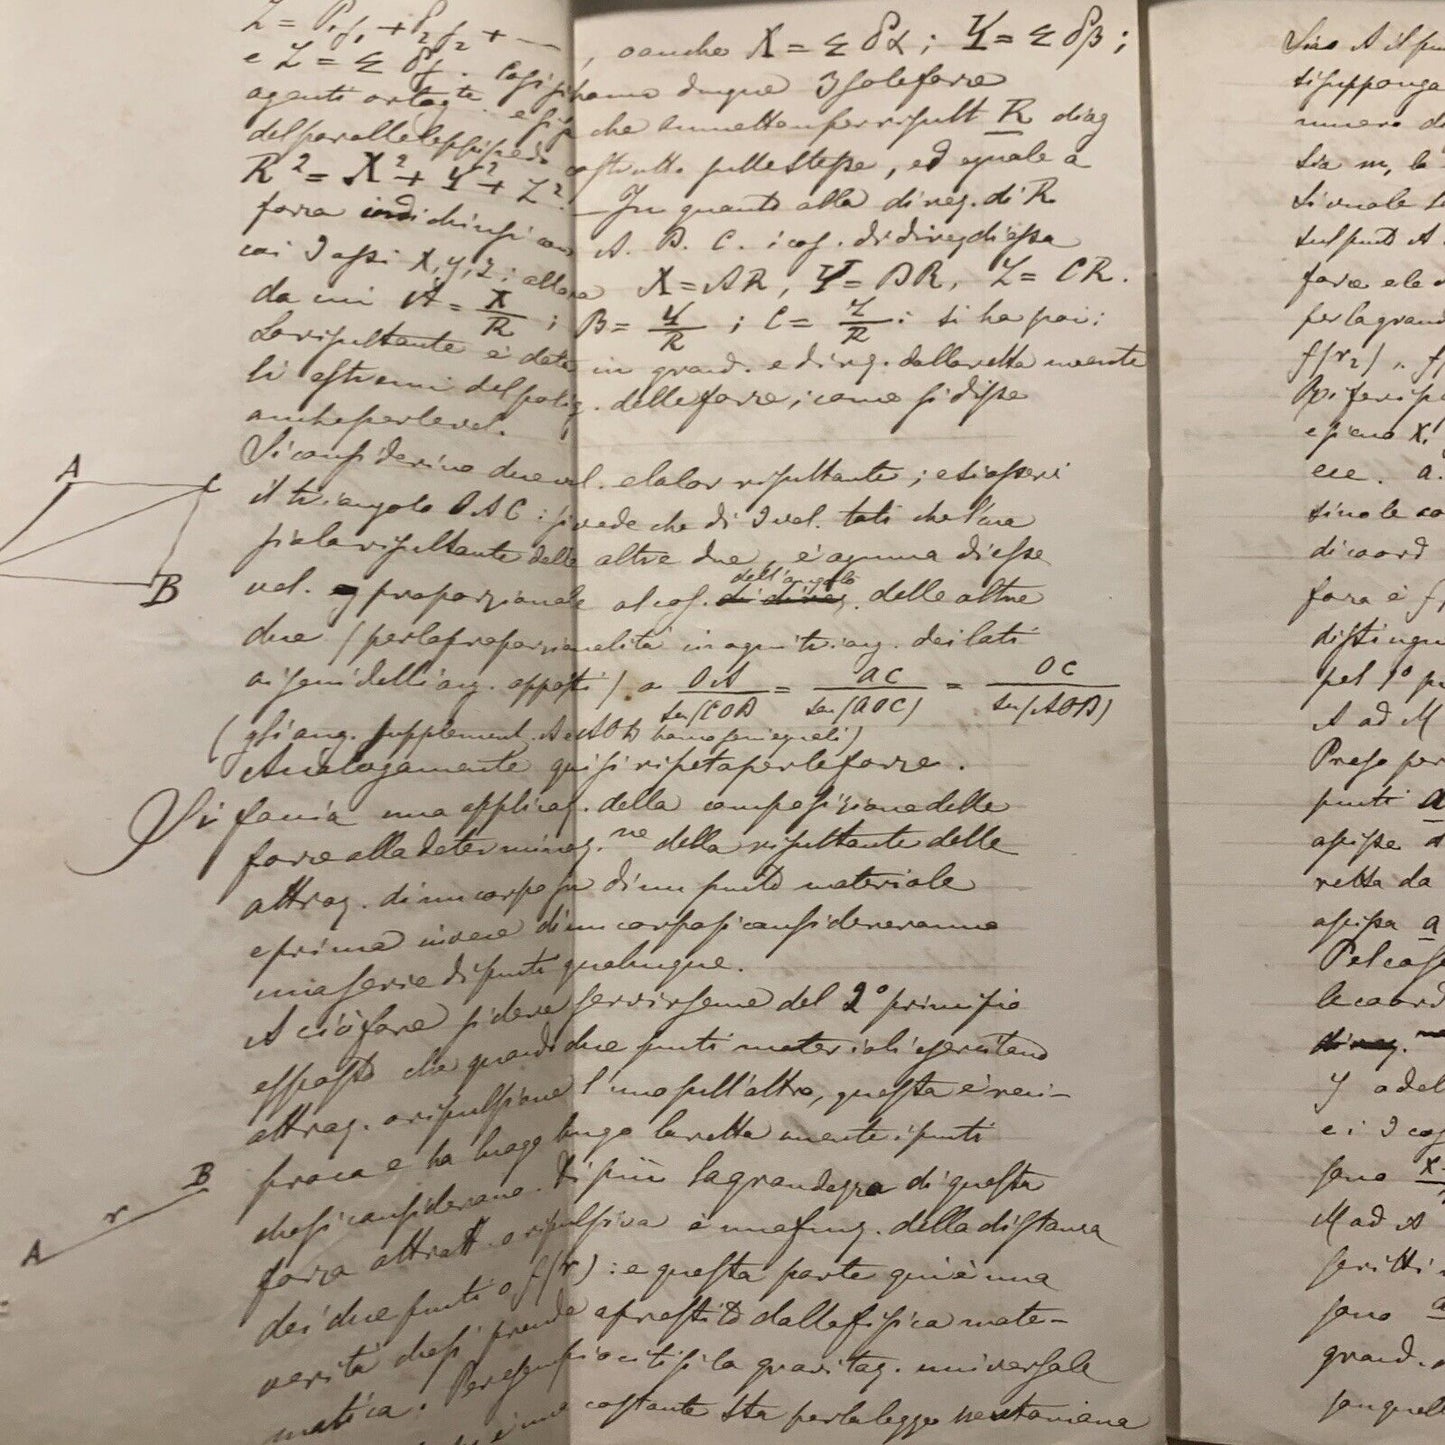 Z = P₁γ₁ + P₂γ₂ + — , o anche X = Σ Pα ; Y = Σ Pβ ;
e Z = Σ Pγ. Così si hanno dunque 3 sole forze
agenti ortog.te e che ammettono per risult R diag
del parallelepipedo costrutto sulle stesse, ed eguale a
R² = X² + Y² + Z². — In quanto alla direz. di R
A. B. C. i cos. di direz di essa
coi 3 assi x, y, z ; allora X = AR, Y = BR, Z = CR.
da cui A = X/R ; B = Y/R ; C = Z/R : si ha poi :
La risultante è data in grand. e direz. dalla retta unente
li estremi del polig. delle forze, come si disse
anche per le vel.
Si considerino due vel. e la lor risultante ; e si osservi
il triangolo OAC : si vede che di 3 vel. tali che l'una
sia la risultante delle altre due, è ognuna di esse
vel. proporzionale al cos. di direz. dell'angolo delle altre
due (per la proporzionalità in ogni triang. dei lati
ai seni delli ang. opposti) o OA/sen(COB) = AC/sen(AOC) = OC/sen(AOB)
(gli ang. supplement. A e AOB hanno seni eguali)
Analogamente quì si ripeta per le forze.
Si faccia una applicaz. della composizione delle
forze alla determinaz.ne della risultante delle
attraz. di un corpo su di un punto materiale
e prima invece di un corpo si considereranno
una serie di punti qualunque.
A ciò fare si deve servirsene del 2° principio
esposto che quando due punti materiali esercitano
attraz. o ripulsione l'uno sull'altro, questa è reci-
proca e ha luogo lungo la retta unente i punti
che si considerano. Di più la grandezza di questa
forza attratt. o ripulsiva è una funz. della distanza
dei due punti o f(r) : e questa parte qui è una
verità che si prende a prestito dalla fisica mate-
matica. Per esempio citisi la gravitaz. universale
costante sta per la legge newtoniana
A
C
B
A
r
B
Sia A il pun
si supponga
numero d
Sia m, la
f(r₂) „ f
e siano x,
ecc. a.
di coord
forza è f
distingu
pel 1° pu
A ad M
Preso per
punti a
ascisse a
retta da
ascissa a
Pel caso
le coord
y a del
e i 3 cos
sono x
M ad A
scritti
sono a
grand.